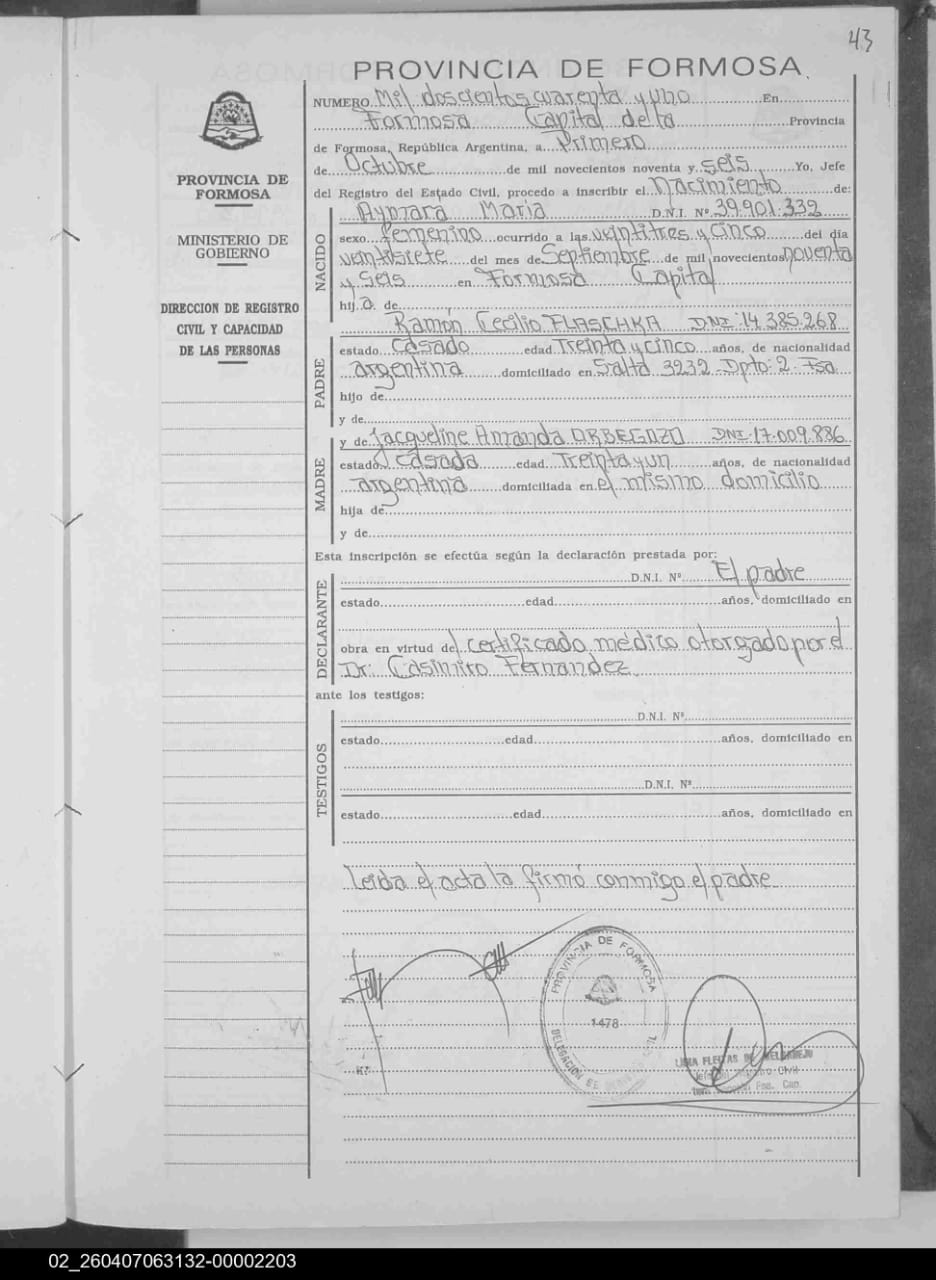 02_260407063132-00002203
43
PROVINCIA DE FORMOSA
PROVINCIA DE
FORMOSA
MINISTERIO DE
GOBIERNO
DIRECCION DE REGISTRO
CIVIL Y CAPACIDAD
DE LAS PERSONAS
NUMERO Mil doscientos cuarenta y ocho En
Formosa Capital de la Provincia
de Formosa, República Argentina, a Primero
de Octubre de mil novecientos noventa y seis Yo, Jefe
del Registro del Estado Civil, procedo a inscribir el Nacimiento de:
NACIDO
Maria D.N.I. Nº 39.901.339
sexo Femenino ocurrido a las veintitres y cinco del día
veintisiete del mes de Septiembre de mil novecientos noventa
y seis en Formosa Capital
hija de
PADRE
Ramon Cecilio FLASCHKA DNI: 14.385.268
estado casado edad Treinta y cinco años, de nacionalidad
argentina domiciliado en Salta 3232 Dpto: 2 Fsa
hijo de
y de
MADRE
y de Jacqueline Amanda DNI: 17.009.886
estado casada edad Treinta y un años, de nacionalidad
argentina domiciliada en el mismo domicilio
hija de
y de
Esta inscripción se efectúa según la declaración prestada por: El padre
DECLARANTE
D.N.I. Nº
estado edad años, domiciliado en
obra en virtud del certificado médico otorgado por el
Dr. Casimiro Fernandez
ante los testigos:
TESTIGOS
D.N.I. Nº
estado edad años, domiciliado en
D.N.I. Nº
estado edad años, domiciliado en
Leida el acta la firmó conmigo el padre
PROVINCIA DE FORMOSA
DELEGACION
1478